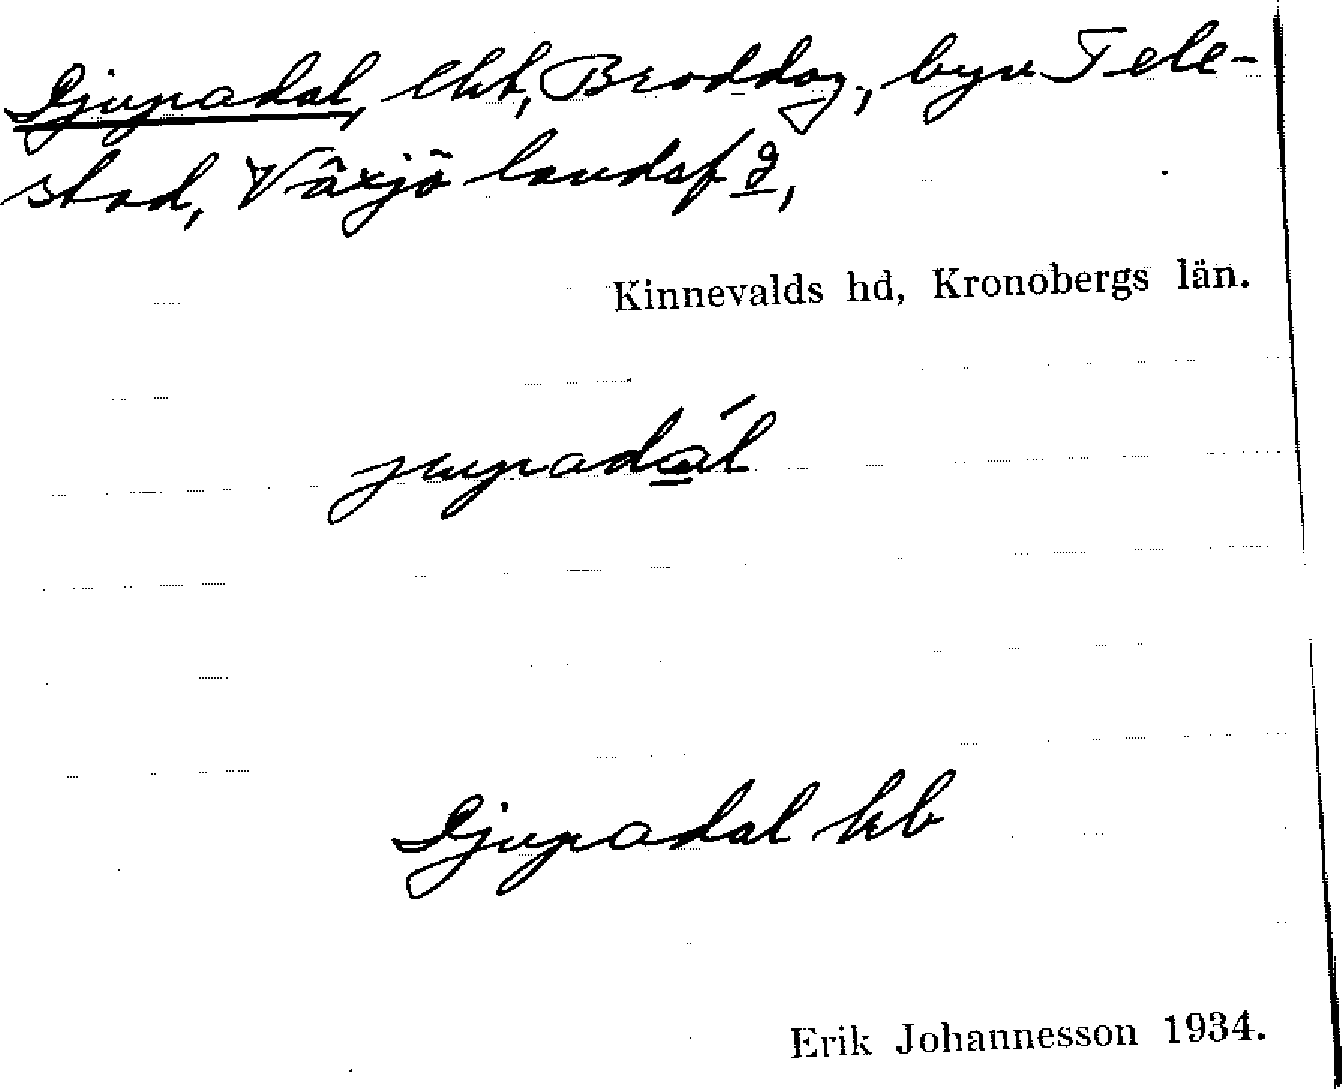 Djupadal, lht, Broddag., byn Tele-
stad, Växjö landsf 2,
Kinnevalds hd, Kronobergs län.
jupadál
Djupadal hb
Erik Johannesson 1934.